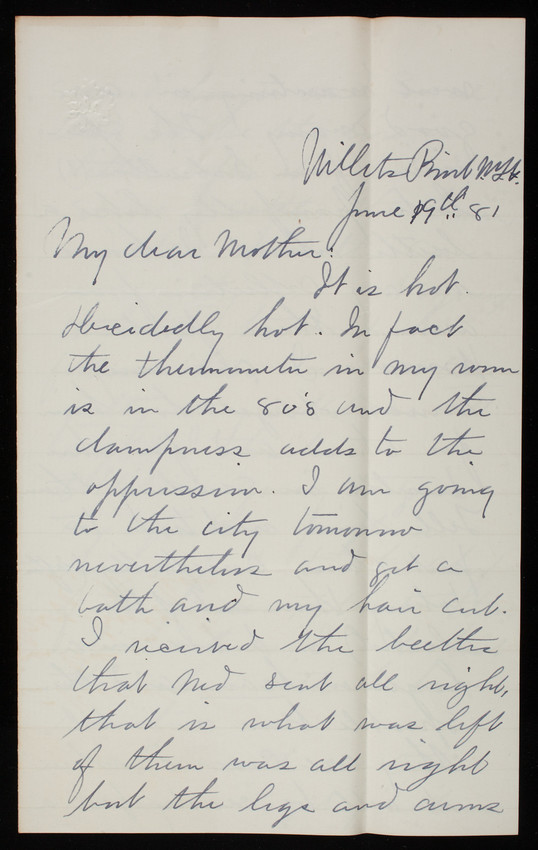 Willets Point N.Y.H.
June 19th 81
My dear Mother:
It is hot.
Decidedly hot. In fact
the thermometer in my room
is in the 80's and the
dampness adds to the
oppression. I am going
to the city tomorrow
nevertheless and get a
bath and my hair cut.
I received the beetles
that Ned sent all right,
that is what was left
of them was all right
but the legs and arms